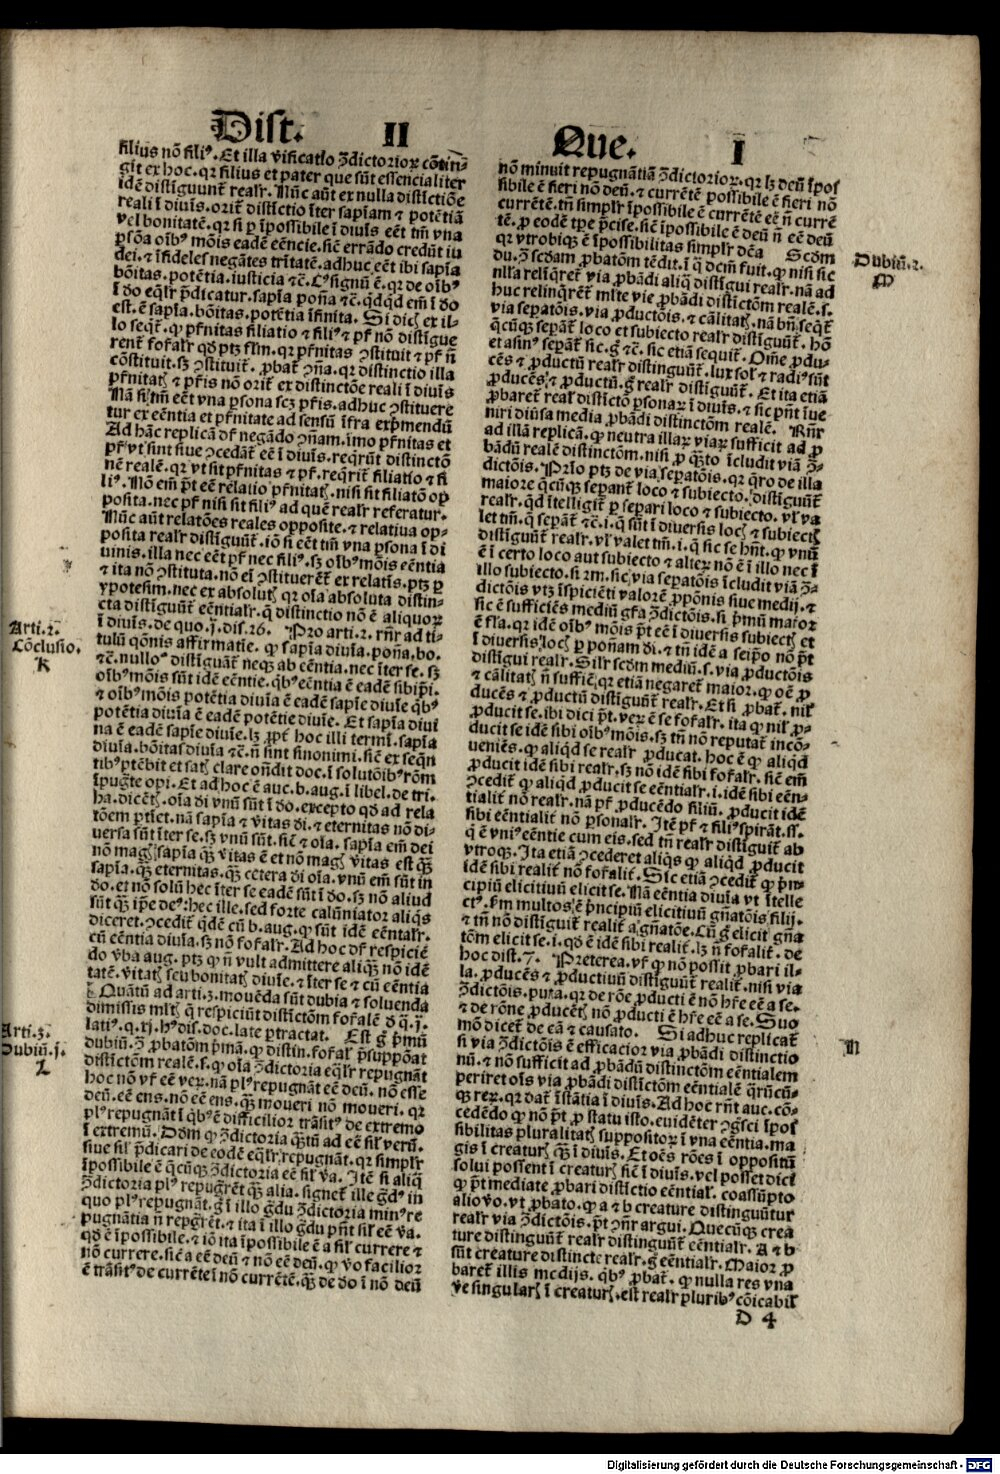 Dist. II
Que. I
filius nō filiꝰ. Et illa v̄ificatio ɔ̄dictorioꝝ cōtin-
git ex hoc. qꝛ filius et pater que sūt essencialiter
idē distīguunt̄ realr̄. Nūc aūt ex nulla distictiōe
reali ī diuīs. orit̄ distīctio īter sapīam ⁊ potētiā
vel bonitatē. qꝛ si ꝑ īpossibile ī diuīs eēt tm̄ vna
ꝑsōa oībꝰ mōis eadē eēncie. sic̄ errādo credūt iu
dei. ⁊ īfideles negātes trītatē. adhuc eēt ibi sapīa
bōitas. potētia. iusticia ⁊c̄. Cꝰ signū ē. qꝛ de oībꝰ
ī do eqlr̄ p̄dicatur. sapīa poña ⁊c̄. qdqd em̄ ī do
est. ē sapīa. bōitas. potētia īfinita. Si dicꝫ ex il-
lo seqt̄. ꝙ pr̄nitas filiatio ⁊ filiꝰ ⁊ pr̄ nō distīgue
rent̄ fofalr̄ qd̄ ptꝫ flm̄. qꝛ pr̄nitas ɔstituit ⁊ pr̄ n̄
cōstituit. sꝫ ɔstituit̄. ꝓbat̄ ɔn̄a. qꝛ distinctio illa
pr̄nitatꝫ ⁊ pr̄is nō orit̄ ex distinctōe reali ī diuīs
Nā si tm̄ eēt vna ꝑsona scꝫ pr̄is. adhuc ɔstituere
tur ex eēntia et pr̄nitate ad sensū īfra exp̄mendū
Ad hāc replicā df̄ negādo ɔn̄am. imo pr̄nitas et
pr̄ vt sint siue ɔcedāt̄ eē ī diuīs. reqrūt distinctō
nē realē. qꝛ vt sit pr̄nitas ⁊ pr̄. reqrit̄ filiatio ⁊ fi
liꝰ. Nō em̄ p̄t eē relatio pr̄nitatꝫ. nisi sit filiatō op̄
posita. nec pr̄ nisi sit filiꝰ ad quē realr̄ referatur.
Nūc aūt relatōes reales opposite. ⁊ relatiua op-
posita realr̄ distīguunt̄. iō si eēt tm̄ vna ꝑsona ī di
uinis. illa nec eēt pr̄ nec filiꝰ. sꝫ oībꝰ mōis eēntia
⁊ ita nō ɔstituta. nō ei ɔstituerēt̄ ex relatīs. ptꝫ ꝑ
ypotesim. nec ex absolutꝫ. qꝛ oīa absoluta distin-
cta distīguūt̄ eēntialr̄. q̄ distinctio nō ē aliquoꝝ
ī diuīs. de quo. j. dis. 26. Pro arti. 2. rn̄r ad ti-
tulū qōnis affirmatīe. ꝙ sapīa diuīa. poña. bo.
⁊c̄. nulloº distīguāt̄ neqꝫ ab eēntia. nec īter se. sꝫ
oībꝰ mōis sūt idē eēntie. qbꝰ eēntia ē eadē sibijpi.
⁊ oībꝰ mōis potētia diuīa ē eadē sapīe diuīe qbꝰ
potētia diuīa ē eadē potētie diuīe. Et sapīa diui
na ē eadē sapīe diuīe. lꝫ ꝓpt̄ hoc illi termī. sapīa
diuīa. bōitas diuīa ⁊c̄. n̄ sint sinonimi. sic̄ ex seqn̄
tibꝰ ptēbit et satꝫ clare ondit doc. ī solutōibꝰ rōm̄
īpugt̄e opi. Et ad hoc ē auc. b. aug. ī libel. de tri.
ha. dicētꝫ. oīa di vnū sūt ī do. excepto qd̄ ad rela
tōem ptīct. nā sapīa ⁊ vitas di. ⁊ eternitas nō di-
uersa sūt īter se. sꝫ vnū sūt. sic̄ ⁊ oīa. sapīa em̄ dei
nō magꝫ sapīa qꝫ vitas ē et nō magꝫ vitas est qꝫ
sapīa. qꝫ eternitas. qꝫ cetera di oīa. vnū em̄ sūt in
do. et nō solū hec īter se eadē sūt ī do. sꝫ nō aliud
sūt qꝫ ip̄e deꝰ: hec ille. sed forte calūniator aliqs
diceret. ɔcedit̄ qdē cū b. aug. ꝙ sūt idē eēntalr̄.
cū eēntia diuīa. sꝫ nō fofalr̄. Ad hoc df̄ respiciē
do v̄ba aug. ptꝫ ꝙ n̄ vult admittere aliqꝫ nō idē
tatē. v̄itatꝫ seu bonitatꝫ diuīe. ⁊ īter se ⁊ cū eēntia
Quātū ad arti. 3. mouēda sūt dubia ⁊ soluenda
dimissis mltꝫ q̄ respiciūt distīctōm fofalē d q. j.
latiꝰ. q. xj. hꝰ dis. doc. late ꝑtractat. Est g̊ pꝰmū
dubiū. ɔ̄ ꝓbatōm p̄mā. ꝙ distin. fofalꝫ p̄suppōat
distīctōm realē. s. ꝙ oīa ɔ̄dictoria eqlr̄ repugnāt
hoc nō vr̄ eē veꝝ. nā plꝰ repugnāt eē deū. nō esse
deū. eē ens. nō eē ens. qꝫ moueri nō moueri. qꝛ
plꝰ repugnāt ī qbꝰ ē difficilior trāsitꝰ de extremo
ī extremū. Dōm ꝙ ɔ̄dictoria qꝫtū ad eē sīl verū.
siue sīl p̄dicari de eodē eqlr̄ repugnāt. qꝛ simplr̄
īpossibile ē qꝰcūqꝫ ɔ̄dictoria eē sīl v̄a. Itē si aliq̄
ɔ̄dictoria plꝰ repugrēt qꝫ alia. signet̄ ille g̊dꝰ in
quo plꝰ repugnāt. g̊ ī illo g̊du ɔ̄dictoria minꝰ re
pugnātia n̄ repgrēt. ⁊ ita ī illo g̊du pn̄t sīl eē v̄a.
qd̄ ē īpossibile. ⁊ iō ita īpossibile ē a sīl currere ⁊
nō currere. sic̄ a eē deū ⁊ nō eē deū. ꝙ vo facilior
ē trāsitꝰ de currēte ī nō currētē. qꝫ de do ī nō deū
Arti. 2.
Cōclusio.
K
Arti. 3.
Dubiū. j.
L
nō minuit repugnātiā ɔ̄dictorioꝝ. qꝛ lꝫ deū īpos
sibile ē fieri nō deū. ⁊ currētē possibile ē fieri nō
currētē. tn̄ simplr̄ īpossibile ē currētē eē n̄ curre
tē. ꝓ eodē tp̄e p̄cise. sic̄ īpossibile ē deū n̄ eē deū
qꝛ vtrobiqꝫ ē īpossibilitas simplr̄ dc̄a Scdm̄
du. ɔ̄ scdam ꝓbatōm tēdit. ī q̄ dcm̄ fuit. ꝙ nisi sic
nlla relīqret̄ via ꝓbādi aliq̄ distīgui realr̄. nā ad
huc relinqret̄ mlte vie ꝓbādi distīctōm realē. s.
via sepatōis. via ꝓductōis. ⁊ cālitatꝫ. nā bn̄ seqt̄
qꝰcūqꝫ sepant̄ loco et subiecto realr̄ distīguūt̄. hō
et asinꝰ sepant̄ sic. g̊ ⁊c̄. sic etiā sequit̄. Om̄e ꝓdu-
cēs ⁊ ꝓductū realr̄ distinguūt̄. lux sol̄ ⁊ radiꝰ sūt
ꝓducēs ⁊ ꝓductū. g̊ realr̄ distīguūt̄. Et ita etiā
ꝓbaret̄ real̄ distīctō ꝑsonaꝝ ī diuīs. ⁊ sic pn̄t īue
niri diūsa media ꝓbādi distinctōm realē. Rn̄r
ad illā replicā. ꝙ neutra illaꝝ viaꝝ sufficit ad ꝓ
bādū realē distinctōm. nisi ꝓ qꝫto īcludit viā ɔ̄-
dictōis. Prīo ptꝫ de via sepatōis. qꝛ qro de illa
maiore qꝰcūqꝫ sepant̄ loco ⁊ subiecto. distīguūt̄
realr̄. qd̄ ītelligit̄ ꝑ separi loco ⁊ subiecto. vl̄ va
let tm̄. q̄ sepāt̄ ⁊c̄. i. q̄ sūt ī diuersis locꝫ ⁊ subiectꝫ
distīguūt̄ realr̄. vl̄ valet tm̄. i. q̄ sic se hn̄t. ꝙ vnū
ē ī certo loco aut subiecto ⁊ alieꝝ nō ē ī illo nec ī
illo subiecto. si 2m̄. sic via sepatōis īcludit viā ɔ̄-
dictōis vtꝫ īspiciēti valorē ꝓpōnis siue medij. ⁊
sic ē sufficiēs mediū gr̄a ɔ̄dictōis. si p̄mū maior
ē fl̄a. qꝛ idē oībꝰ mōis p̄t eē ī diuersis subiectꝫ et
ī diuersis locꝫ ꝑ poñam di. ⁊ tn̄ idē a seip̄o nō p̄t
distīgui realr̄. Silr̄ scdm̄ mediū. s. via ꝓductōis
⁊ cālitatꝫ n̄ suffic̄. qꝛ etiā negaret̄ maior. ꝙ oē ꝓ
ducēs ⁊ ꝓductū distīguūt̄ realr̄. Et si ꝓbat̄. nil̄
ꝓducit se. ibi dici p̄t. veꝝ ē se fofalr̄. ita ꝙ nil̄ ꝓ-
ducit se idē sibi oībꝰ mōis. sꝫ tn̄ nō reputat̄ incō-
ueniēs. ꝙ aliqd se realr̄ ꝓducat. hoc ē ꝙ aliqd
ꝓducit idē sibi realr̄. sꝫ nō idē sibi fofalr̄. sic̄ em̄
ɔcedit̄ ꝙ aliqd ꝓducit se eēntialr̄. i. idē sibi eēn-
tialit̄ nō realr̄. nā pr̄ ꝓducēdo filiū. ꝓducit idē
sibi eēntialit̄ nō ꝑsonalr̄. Itē pr̄ ⁊ filiꝰ spirāt. ss.
q̄ ē vniꝰ eēntie cum eis. sed tn̄ realr̄ distīguit̄ ab
vtroqꝫ. Ita etiā ɔcederet aliqs ꝙ aliqd ꝓducit
idē sibi realit̄ nō fofalit̄. Sic etiā ɔcedit̄ ꝙ p̄in-
cipiū elicitiuū elicit se. Nā eēntia diuīa vt ītelle
ctꝰ. ẜm multos ē p̄ncipiū elicitiuū gn̄atōis filij.
⁊ tn̄ nō distīguit̄ realit̄ a gn̄atōe. Cū g̊ elicit gn̄a
tōm elicit se. i. qd̄ ē idē sibi realit̄. lꝫ n̄ fofalit̄. de
hoc dist. 7. Preterea. vr̄ ꝙ nō possit ꝓbari il-
la. ꝓducēs ⁊ ꝓductiuū distīguūt̄ realit̄. nisi via
ɔ̄dictōis. puta. qꝛ de rōe ꝓducti ē nō hr̄e eē a se.
⁊ de rōne ꝓducētꝫ nō ꝓducti ē hr̄e eē a se. Suo
mō dicet̄ de cā ⁊ causato. Si adhuc replicat̄
si via ɔ̄dictōis ē efficacior via ꝓbādi distinctio
nū. ⁊ nō sufficit ad ꝓbādū distinctōm eēntialem
periret oīs via ꝓbādi distīctōm eēntialē qꝝcū-
qꝫ reꝝ. qꝛ dat̄ īstātia ī diuīs. Ad hoc rn̄t auc. cō-
cedēdo ꝙ nō p̄t ꝓ statu isto. euidēter ɔgsci īpos
sibilitas pluralitatꝫ suppositoꝝ ī vna eēntia. ma
gis ī creaturꝫ qꝫ ī diuīs. Et oēs rōes ī oppositū
solui possent ī creaturꝫ sic̄ ī diuīs. vel posset dici
ꝙ p̄t mediate ꝓbari distīctio eēntial̄. coassūpto
alio vo. vt ꝓbato. ꝙ a ⁊ b creature distinguūtur
realr̄ via ɔ̄dictōis. p̄t ɔn̄r argui. Quecūqꝫ crea
ture distinguūt̄ realr̄ distinguūt̄ eēntialr̄. A ⁊ b
sūt creature distincte realr̄. g̊ eēntialr̄. Maior ꝓ
baret̄ illis medijs. qbꝰ ꝓbat̄. ꝙ nulla res vna
v̄e singularꝫ ī creaturꝫ. est realr̄ pluribꝰ cōicabil̄
Dubiū. 2.
M
N
D 4
Digitalisierung gefördert durch die Deutsche Forschungsgemeinschaft - DFG